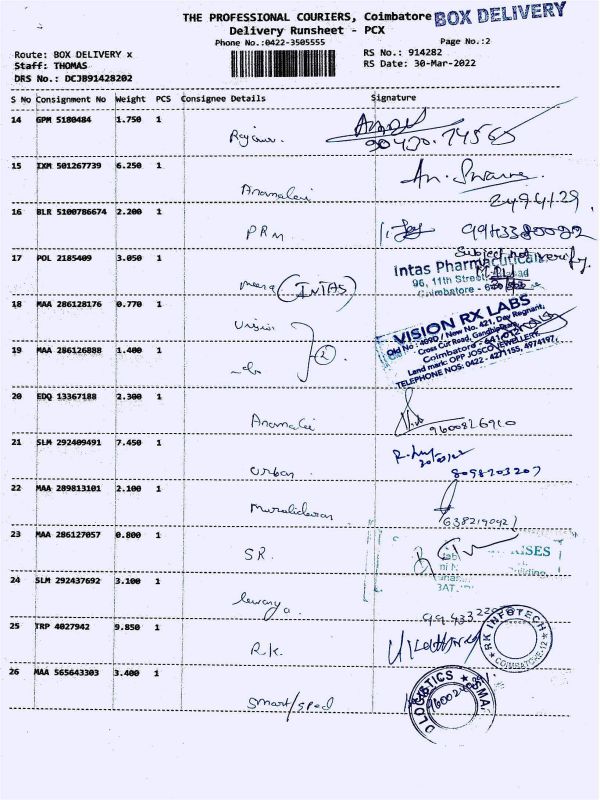 THE PROFESSIONAL COURIERS, Coimbatore BOX DELIVERY
Delivery Runsheet - PCX
Phone No.:0422-3505555
Page No.:2
Route: BOX DELIVERY x
RS No.: 914282
Staff: THOMAS
RS Date: 30-Mar-2022
DRS No.: DCJB91428202
S No Consignment No Weight PCS Consignee Details Signature
14 GPM 5180484 1.750 1
15 IXM 501267739 6.250 1
Anamalai
16 BLR 5100786674 2.200 1
PRM
9943380082
17 POL 2185409 3.050 1
Subject not verify.
meera (INTAS)
Intas Pharmaceuticals
96, 11th Street,
Coimbatore -
18 MAA 286128176 0.770 1
Vision
2
VISION RX LABS
Old No : 409D / New No. 421, Day Regnant,
Cross Cut Road, Gandhipuram,
Coimbatore - 641 012
Land mark: OPP JOSCO JEWELLERY
TELEPHONE NOS: 0422 - 4271155, 4974197,
19 MAA 286126888 1.400 1
-do
20 EDQ 13367188 2.300 1
Anamalai
9600826910
21 SLM 292409491 7.450 1
urban
8098203207
22 MAA 289813101 2.100 1
Muralidaran
23 MAA 286127057 0.800 1
SR.
24 SLM 292437692 3.100 1
lavanya.
25 TRP 4027942 9.850 1
R.K.
RK INFOTECH
COIMBATORE-12
26 MAA 565643303 3.400 1
smart/sped